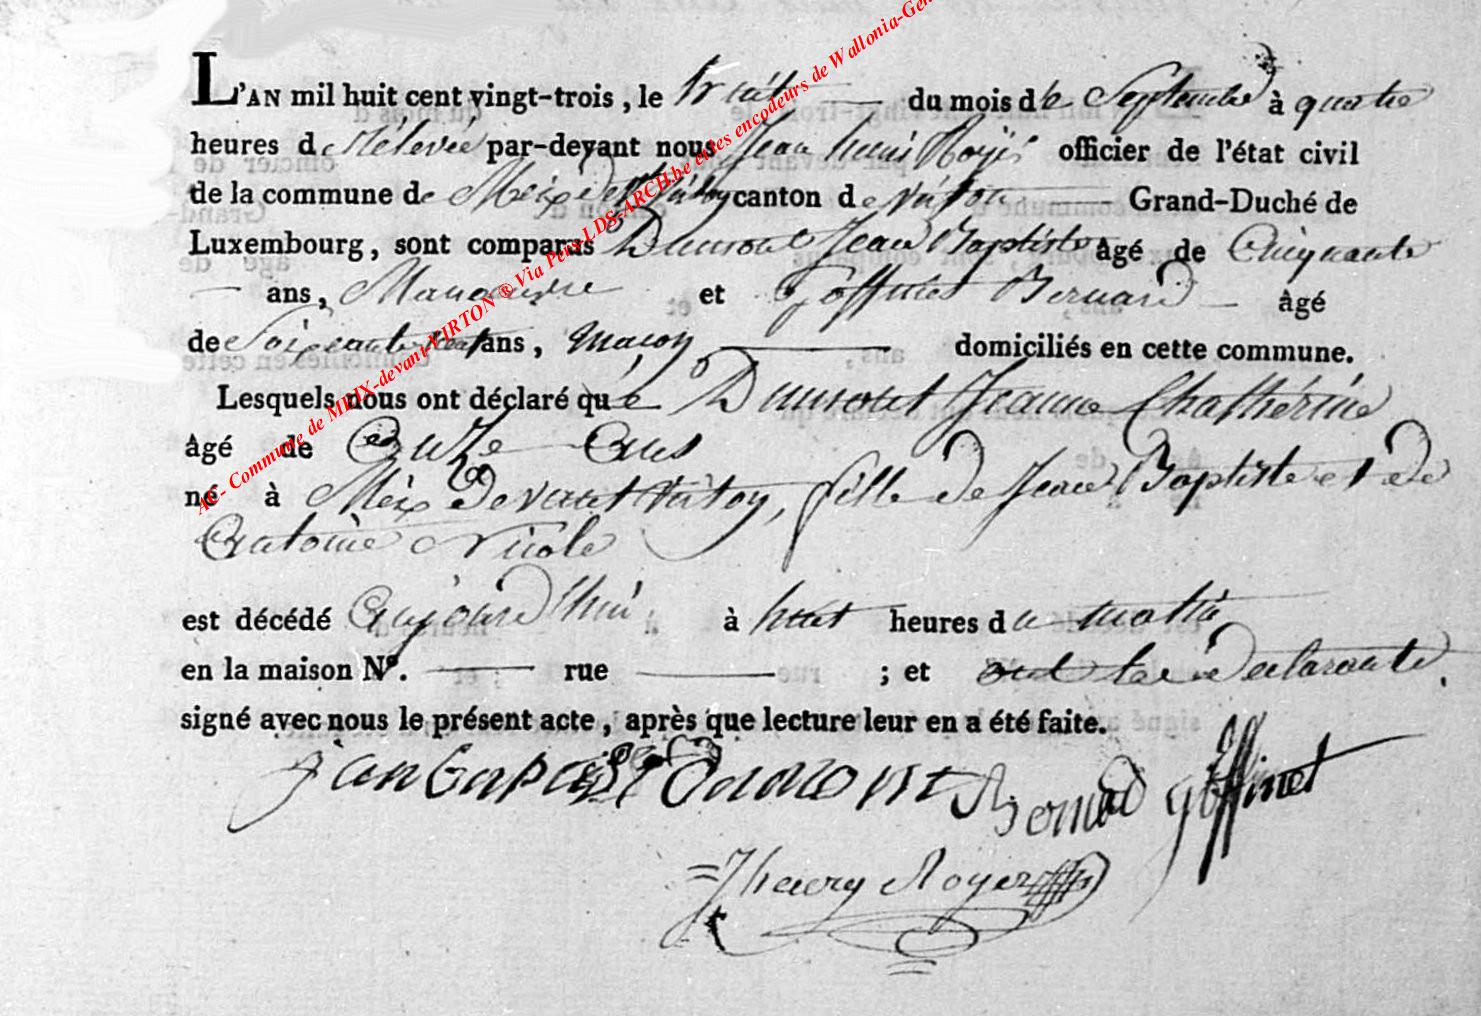 L'AN mil huit cent vingt-trois, le huit du mois de Septembre à quatre
heures de Rélevée par-devant nous Jean henri Royer officier de l'état civil
de la commune de Meix devant Virton canton de Virton Grand-Duché de
Luxembourg, sont comparus Dumont Jean Baptiste âgé de Cinquante
ans, Manoeuvre et Goffinet Bernard âgé
de Soixante ans, maçon domiciliés en cette commune.
Lesquels nous ont déclaré que Dumont Jeanne Chathérine
âgé de Onze Ans
né à Meix Devant Virton, fille de Jean Baptiste et de
Nicole
est décédé Aujourd'hui à huit heures du matin
en la maison Nº. rue ; et ont les Declarants
signé avec nous le présent acte, après que lecture leur en a été faite.
jan baptist Dumont Bernard goffinet
Royer
AC- Commune de MEIX-devant-VIRTON ® Via Pers-LDS-ARCH.be et les encodeurs de Wallonia-Gen